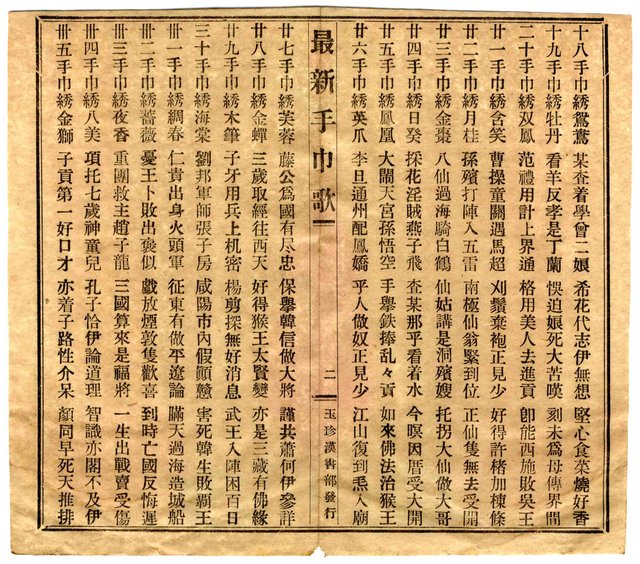 十八手巾綉鴛鴦 某查着學會二娘 希花代志伊無想 堅心食菜燒好香
十九手巾綉牡丹 看羊反孝是丁蘭 悞迫娘死大苦嘆 刻木為母傳界間
二十手巾綉双鳳 范禮用計上界通 格用美人去進貢 卽能西施敗吳王
廿一手巾綉含笑 曹操童關遇馬超 刈鬚棄袍正見少 好得許楮加棟條
廿二手巾綉月桂 孫殯打陣入五雷 南極仙翁緊到位 正仙隻無去受開
廿三手巾綉金棗 八仙過海騎白鶴 仙姑講是洞殯嫂 托拐大仙做大哥
廿四手巾綉日癸 探花淫賊燕子飛 查某那乎看着水 今嗔因厝受大開
廿五手巾綉鳳凰 大鬧天宮孫悟空 手舉鉄捧乱々貢 如來佛法治猴王
廿六手巾綉英爪 李旦通州配鳳嬌 乎人做奴正見少 江山復到忢入廟
最新手巾歌 二 玉珍漢書部發行
廿七手巾綉芙蓉 藤公爲國有尽忠 保舉韓信做大將 謹共蕭何伊參詳
廿八手巾綉金蟬 三歲取經往西天 好得猴王太賢變 亦是三藏有佛緣
廿九手巾綉木筆 子牙用兵上机密 楊剪探無好消息 武王入陣困百日
三十手巾綉海棠 劉邦軍師張子房 咸陽市內假顛戇 害死韓生敗覇王
卅一手巾綉綢春 仁貴出身火頭軍 征東有做平遼論 瞞天過海造城船
卅二手巾綉薔薇 憂王卜敗出褒似 戲放煙敦隻歡喜 到時亡國反悔遲
卅三手巾綉夜香 重團救主趙子龍 三國算來是福將 一生出戰賣受傷
卅四手巾綉八美 項托七歲神童兒 孔子恰伊論道理 智識亦閣不及伊
卅五手巾綉金獅 子貢第一好口才 亦着子路性介呆 顏同早死天推排